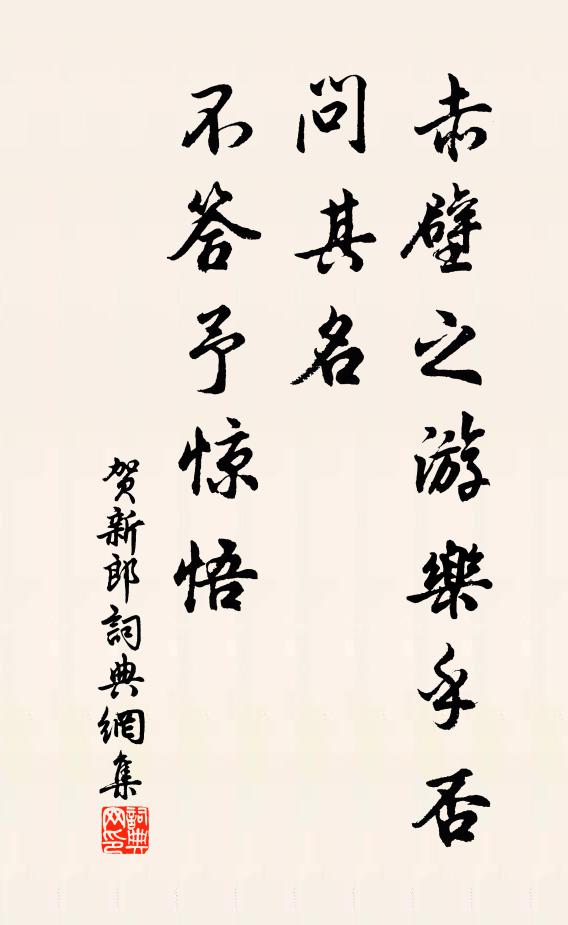 赤壁之游樂乎否
問其名
不答予惊悟
贺新郎詞典網集
詞典
网印